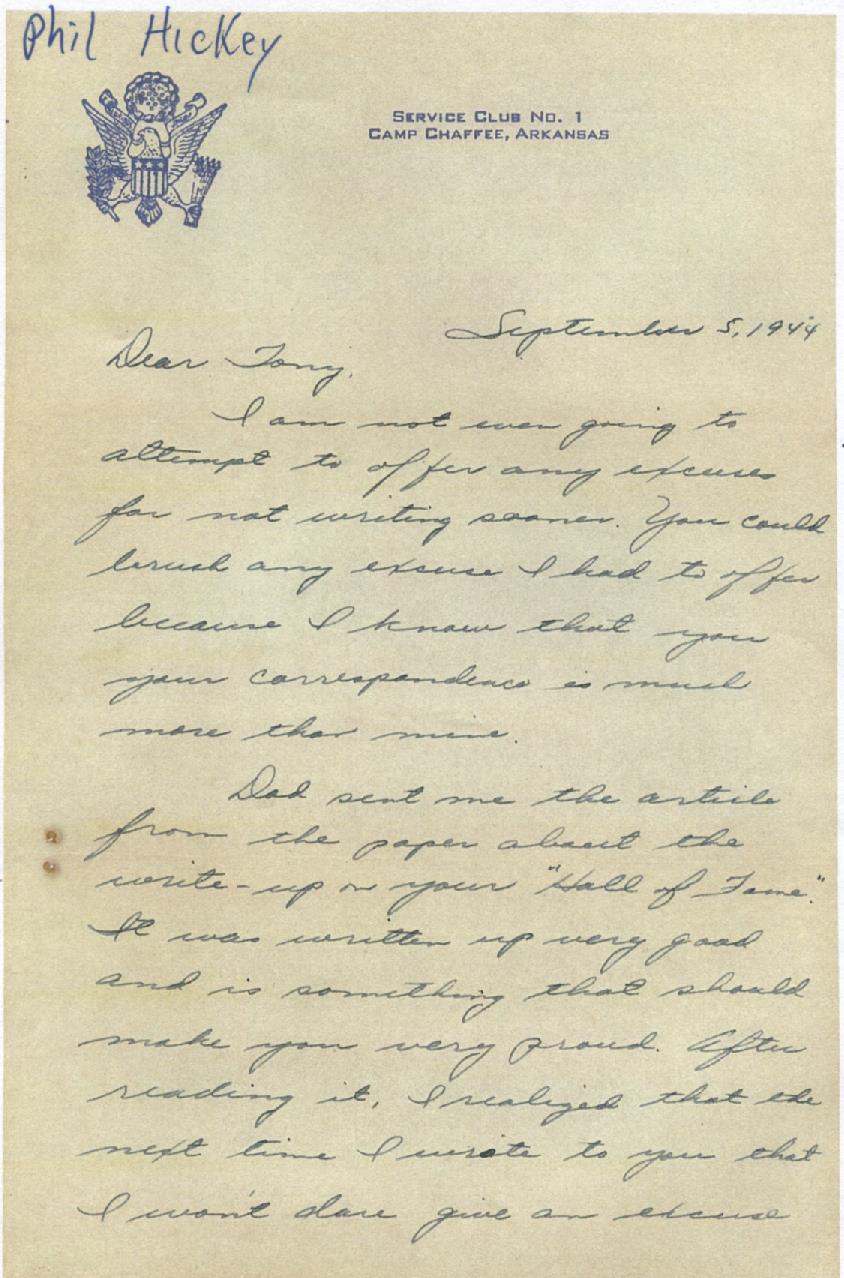 Phil Hickey
SERVICE CLUB NO. 1
CAMP CHAFFEE, ARKANSAS
September 5, 1944
Dear Tony,
I am not even going to
attempt to offer any excuses
for not writing sooner. You could
brush any excuse I had to offer
because I know that you
your correspondence is much
more than mine.
Dad sent me the article
from the paper about the
write-up on your "Hall of Fame".
It was written up very good
and is something that should
make you very proud. After
reading it, I realized that the
next time I wrote to you that
I won't dare give an excuse